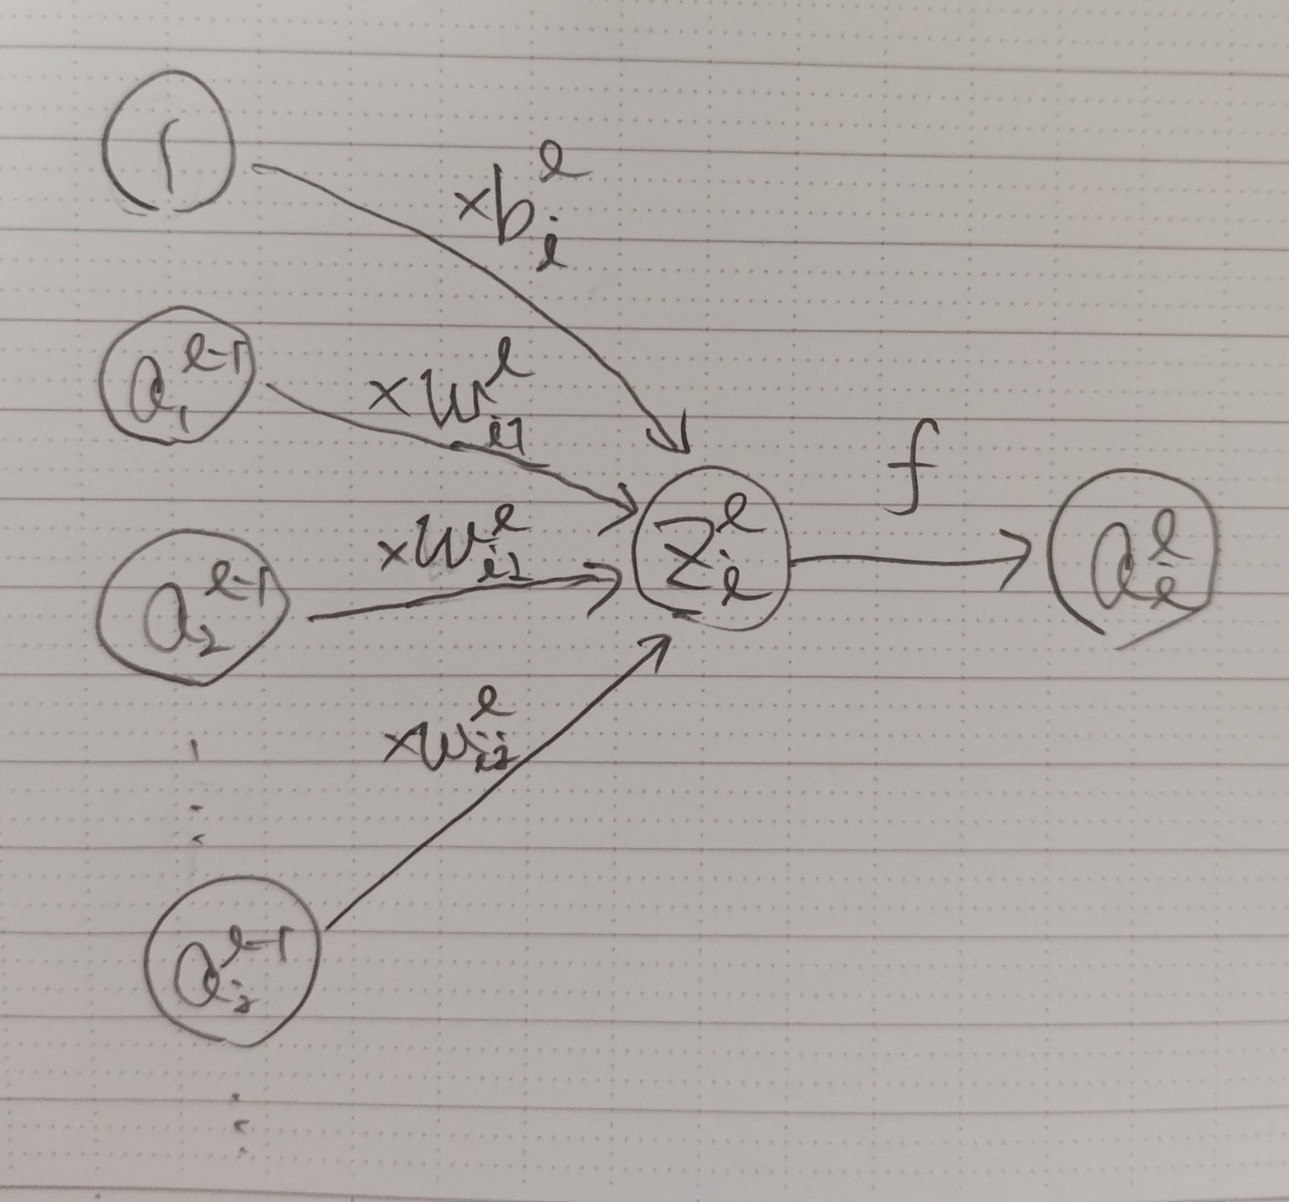 1
×b_i^l
a_1^{l-1}
×w_{i1}^l
a_2^{l-1}
×w_{i2}^l
z_i^l
f
a_i^l
×w_{ij}^l
a_j^{l-1}